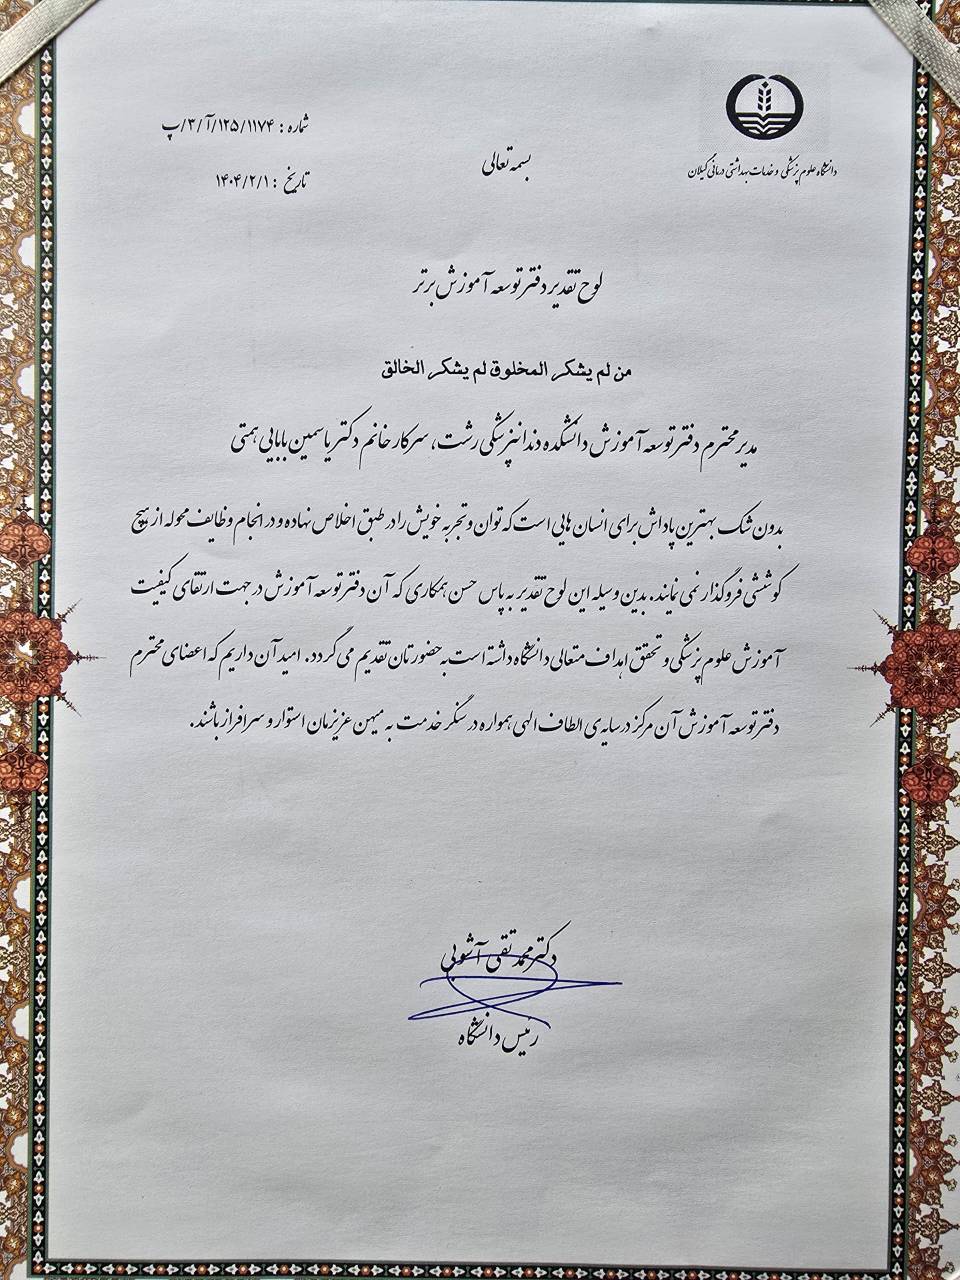 دانشگاه علوم پزشکی و خدمات بهداشتی درمانی گیلان
شماره : ۳/آ/۱۲۵/۱۱۷۴/پ
تاریخ : ۱۴۰۴/۲/۱
بسمه تعالی
لوح تقدیر دفتر توسعه آموزش برتر
من لم یشکر المخلوق لم یشکر الخالق
مدیر محترم دفتر توسعه آموزش دانشکده دندانپزشکی رشت، سرکار خانم دکتر یاسمین بابایی همتی
بدون شک بهترین پاداش برای انسان هایی است که توان و تجربه خویش را در طبق اخلاص نهاده و در انجام وظایف محوله از هیچ
کوششی فروگذار نمی نمایند. بدین وسیله این لوح تقدیر به پاس حسن همکاری که آن دفتر توسعه آموزش در جهت ارتقای کیفیت
آموزش علوم پزشکی و تحقق اهداف متعالی دانشگاه داشته است به حضورتان تقدیم می گردد. امید آن داریم که اعضای محترم
دفتر توسعه آموزش آن مرکز در سایه ی الطاف الهی همواره در سنگر خدمت به میهن عزیزمان استوار و سرافراز باشند.
دکتر محمد تقی آشوبی
رئیس دانشگاه